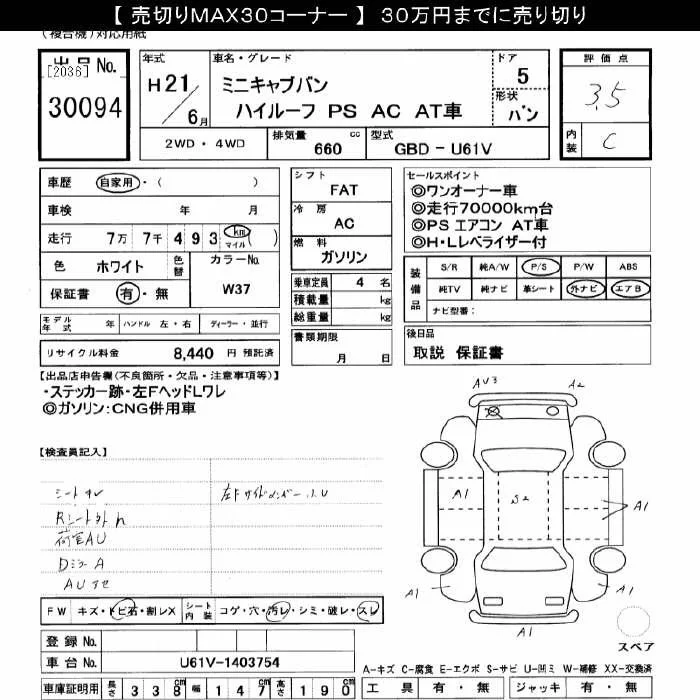 【 売切りMAX30コーナー 】 30万円までに売り切り
(複合機)対応用紙
出品 No.
[2036]
30094
年式
H21/6月
車名・グレード
ミニキャブバン
ハイルーフ PS AC AT車
ドア
5
形状
バン
評価点
3.5
内装
C
2WD ・ 4WD
排気量
660 cc
型式
GBD - U61V
車歴 自家用・( )
車検 年 月
走行 7万 7千 4 9 3 km マイル ( )
色 ホワイト 色替 カラーNo.
保証書 有・無 W37
シフト
FAT
冷房
AC
燃料
ガソリン
乗車定員 4 名
積載量 kg
総重量 kg
書類期限
月 日
セールスポイント
◎ワンオーナー車
◎走行70000km台
◎PS エアコン AT車
◎H・Lレベライザー付
装備品
S/R 純A/W P/S P/W ABS
純TV 純ナビ 革シート 外ナビ エアB
ナビ型番:
モデル年式 年 ハンドル 左・右 ディーラー・並行
リサイクル料金 8,440 円 預託済
後日品
取説 保証書
【出品店申告欄(不良箇所・欠品・注意事項等)】
・ステッカー跡・左FヘッドLワレ
◎ガソリン:CNG併用車
【検査員記入】
シートスレ
左FサイドメンバーU
荷室AU
DミラーA
AUアセ
AU3 A2
A1 S2 A1
A1 A1
A1
FW キズ・トビ石・割レX シート内装 コゲ・穴・汚レ・シミ・破レ・スレ
登録 No.
車台 No. U61V-1403754
車庫証明用 長さ 3 3 8 cm 幅 1 4 7 cm 高さ 1 9 0 cm
スペア
A-キズ C-腐食 E-エクボ S-サビ U-凹ミ W-補修 XX-交換済
工具 有・無 ジャッキ 有・無